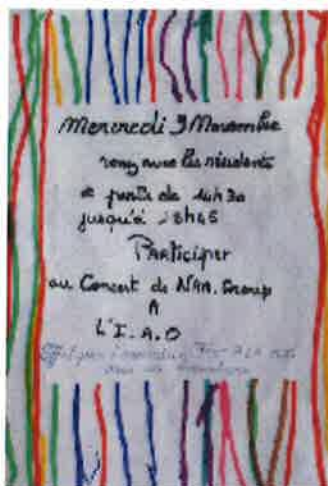 Mercredi 9 Novembre
venez avec les résidents
à partir de 14h30
jusqu'à 18h45
Participer
au Concert de Group
A
L'I.A.O